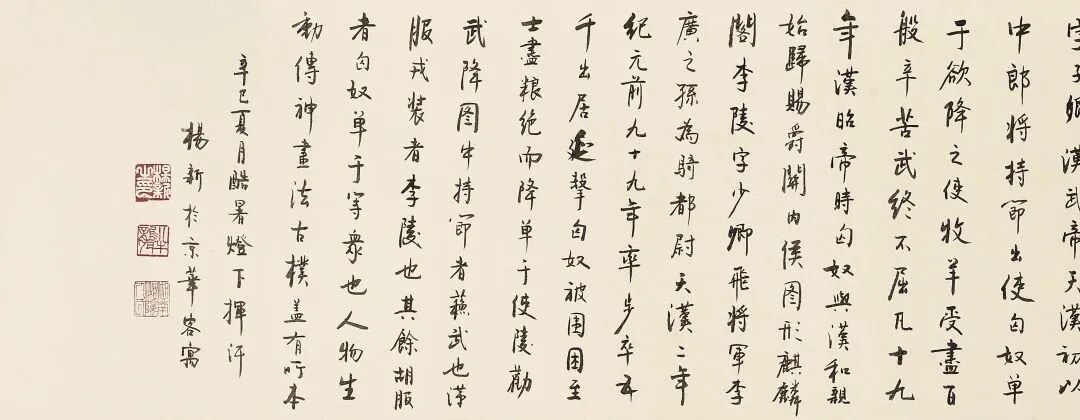 字子卿漢武帝天漢初以
中郎将持節出使匈奴单
于欲降之使牧羊受盡百
般辛苦武终不屈凡十九
年漢昭帝時匈奴與漢和親
始歸賜爵關内侯图形麒麟
閣李陵字少卿飛将軍李
廣之孫為騎都尉天漢二年
纪元前九十九年率步卒五
千出居延擊匈奴被围困至
士盡粮绝而降单于使陵勸
武降图中持節者蘇武也漢
服戎装者李陵也其餘胡服
者匈奴单于等衆也人物生
動傳神畫法古樸盖有所本
辛巳夏月酷暑燈下揮汗
楊新於京華客寓